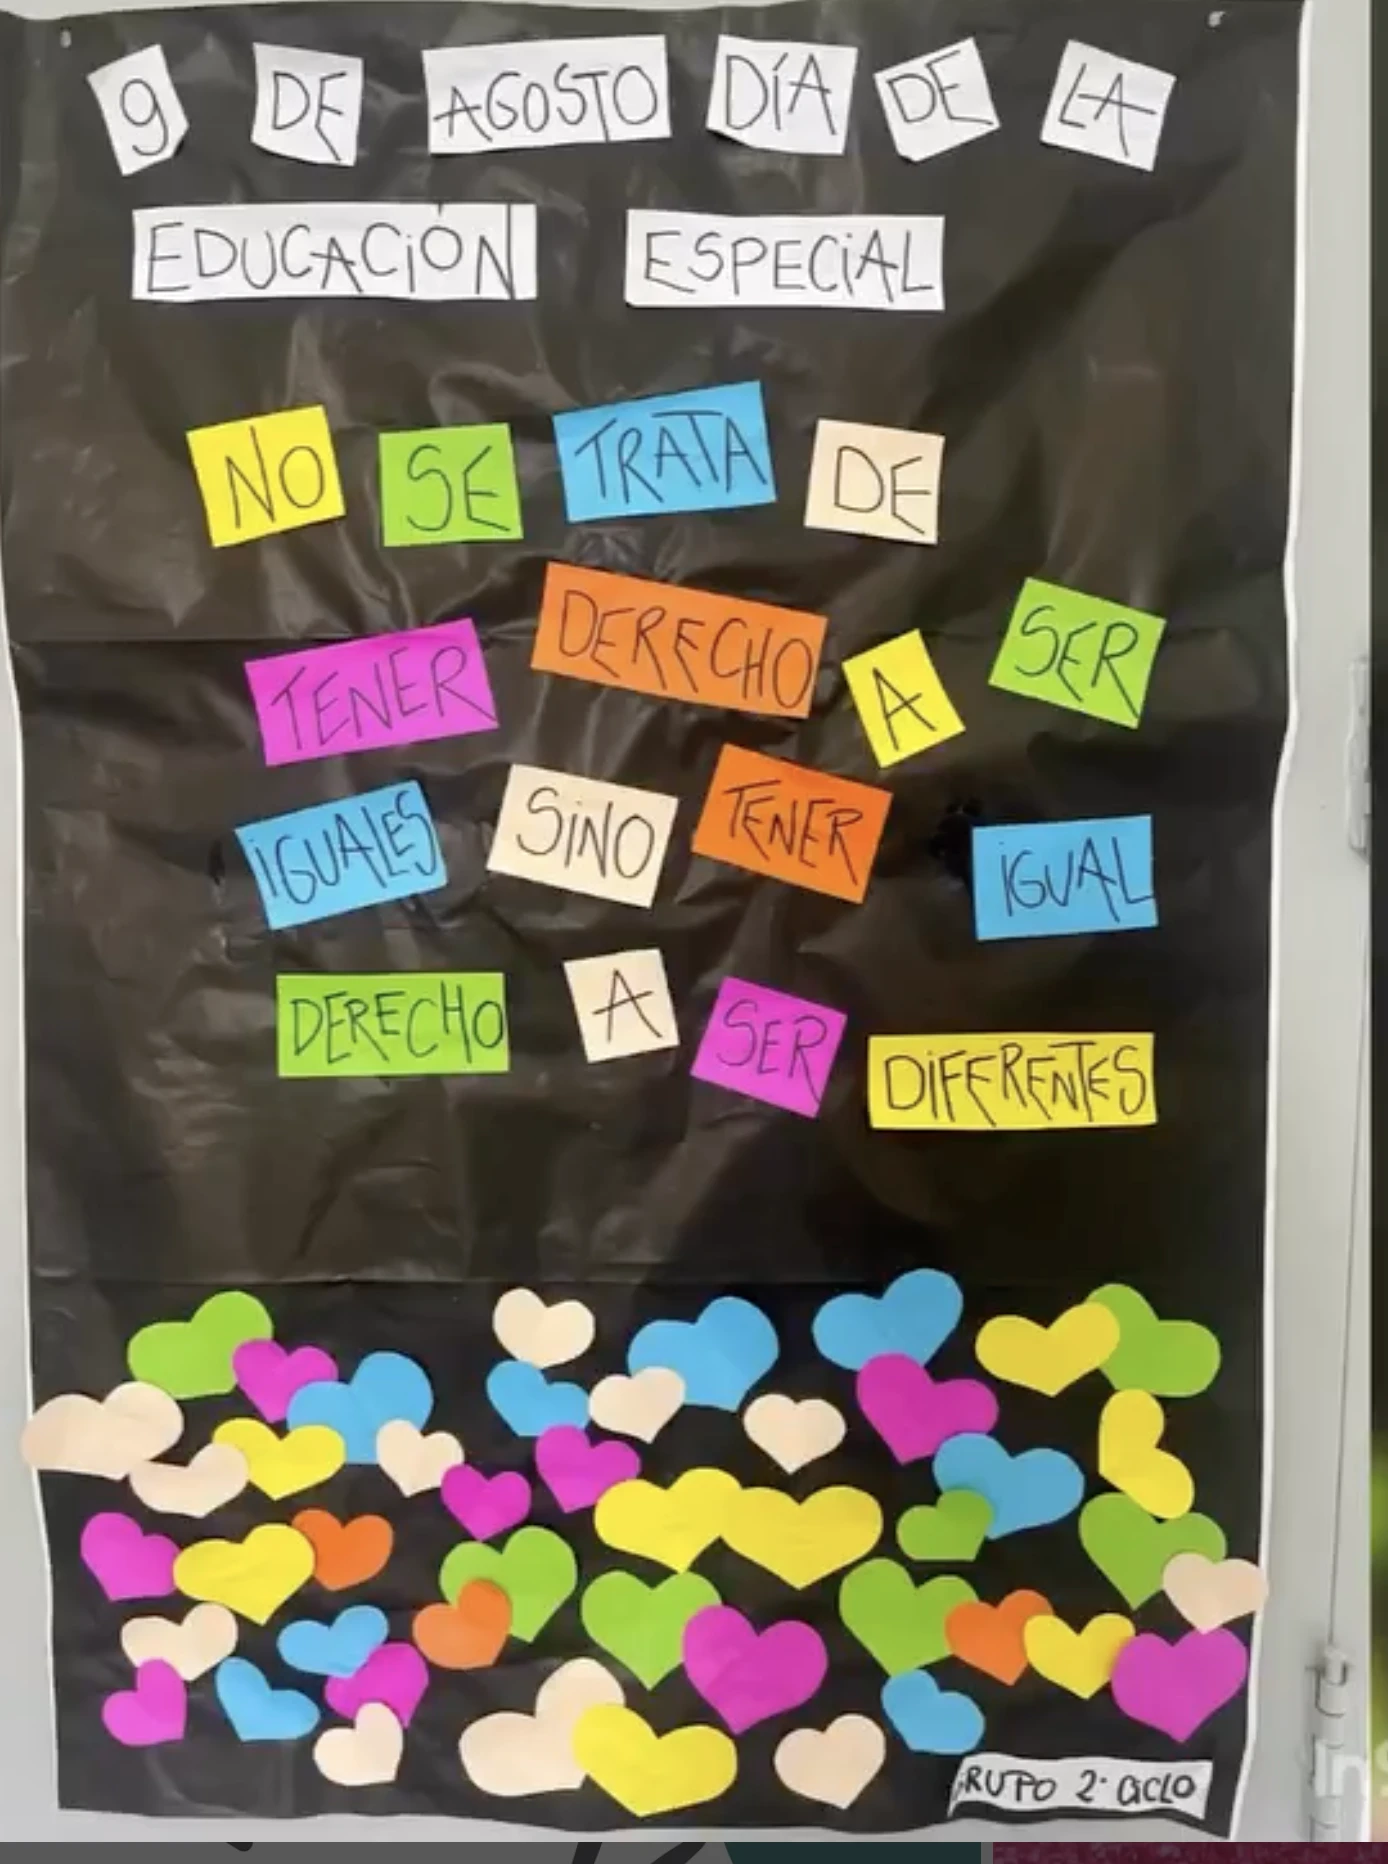 9 DE AGOSTO DÍA DE LA
EDUCACIÓN ESPECIAL
NO SE TRATA DE
TENER DERECHO A SER
IGUALES SINO TENER IGUAL
DERECHO A SER DIFERENTES
GRUPO 2° CICLO